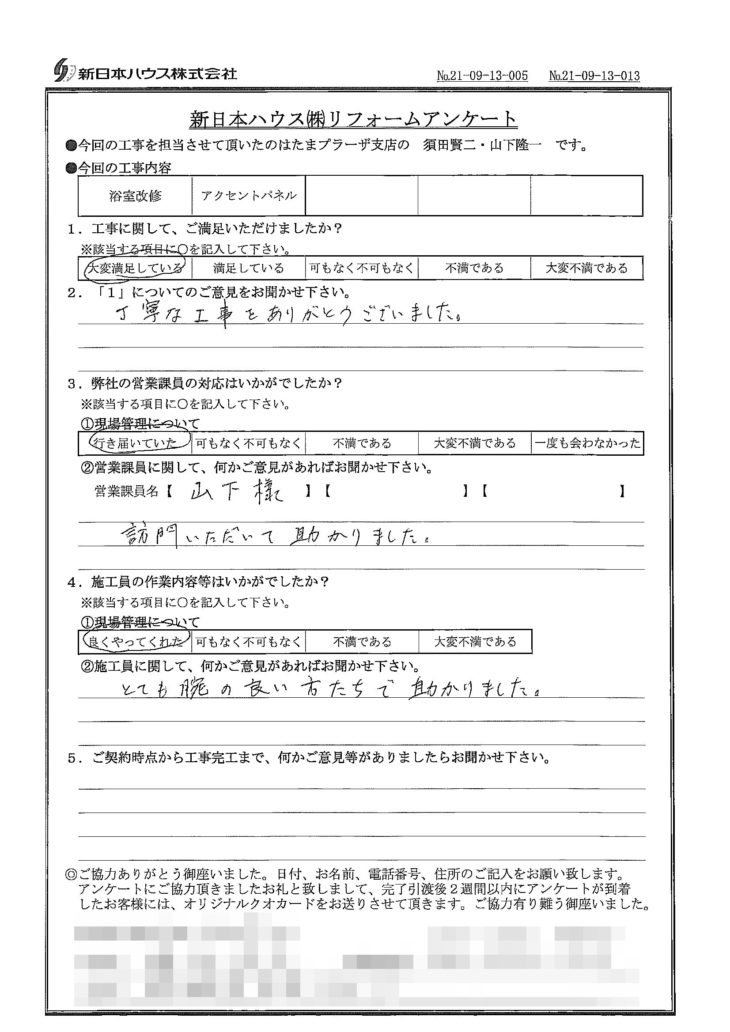 新日本ハウス株式会社 №21-09-13-005 №21-09-13-013
新日本ハウス㈱リフォームアンケート
●今回の工事を担当させて頂いたのはたまプラーザ支店の 須田賢二・山下隆一 です。
●今回の工事内容
浴室改修 アクセントパネル
1．工事に関して、ご満足いただけましたか？
※該当する項目に○を記入して下さい。
大変満足している 満足している 可もなく不可もなく 不満である 大変不満である
2．「1」についてのご意見をお聞かせ下さい。
丁寧な工事をありがとうございました。
3．弊社の営業課員の対応はいかがでしたか？
※該当する項目に○を記入して下さい。
①現場管理について
行き届いていた 可もなく不可もなく 不満である 大変不満である 一度も会わなかった
②営業課員に関して、何かご意見があればお聞かせ下さい。
営業課員名【 山下様 】【 】【 】
訪問いただいて助かりました。
4．施工員の作業内容等はいかがでしたか？
※該当する項目に○を記入して下さい。
①現場管理について
良くやってくれた 可もなく不可もなく 不満である 大変不満である
②施工員に関して、何かご意見があればお聞かせ下さい。
とても腕の良い方たちで助かりました。
5．ご契約時点から工事完工まで、何かご意見等がありましたらお聞かせ下さい。
◎ご協力ありがとう御座いました。日付、お名前、電話番号、住所のご記入をお願い致します。
アンケートにご協力頂きましたお礼と致しまして、完了引渡後2週間以内にアンケートが到着
したお客様には、オリジナルクオカードをお送りさせて頂きます。ご協力有り難う御座いました。